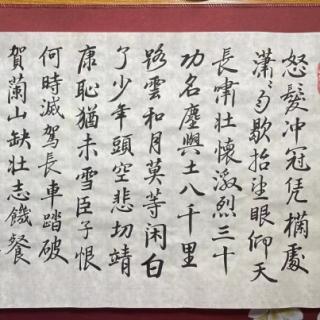 怒髮冲冠凭欄處
瀟々雨歇抬望眼仰天
長嘯壯懷激烈三十
功名塵與土八千里
路雲和月莫等闲白
了少年頭空悲切靖
康恥猶未雪臣子恨
何時滅駕長車踏破
賀蘭山缺壯志饑餐